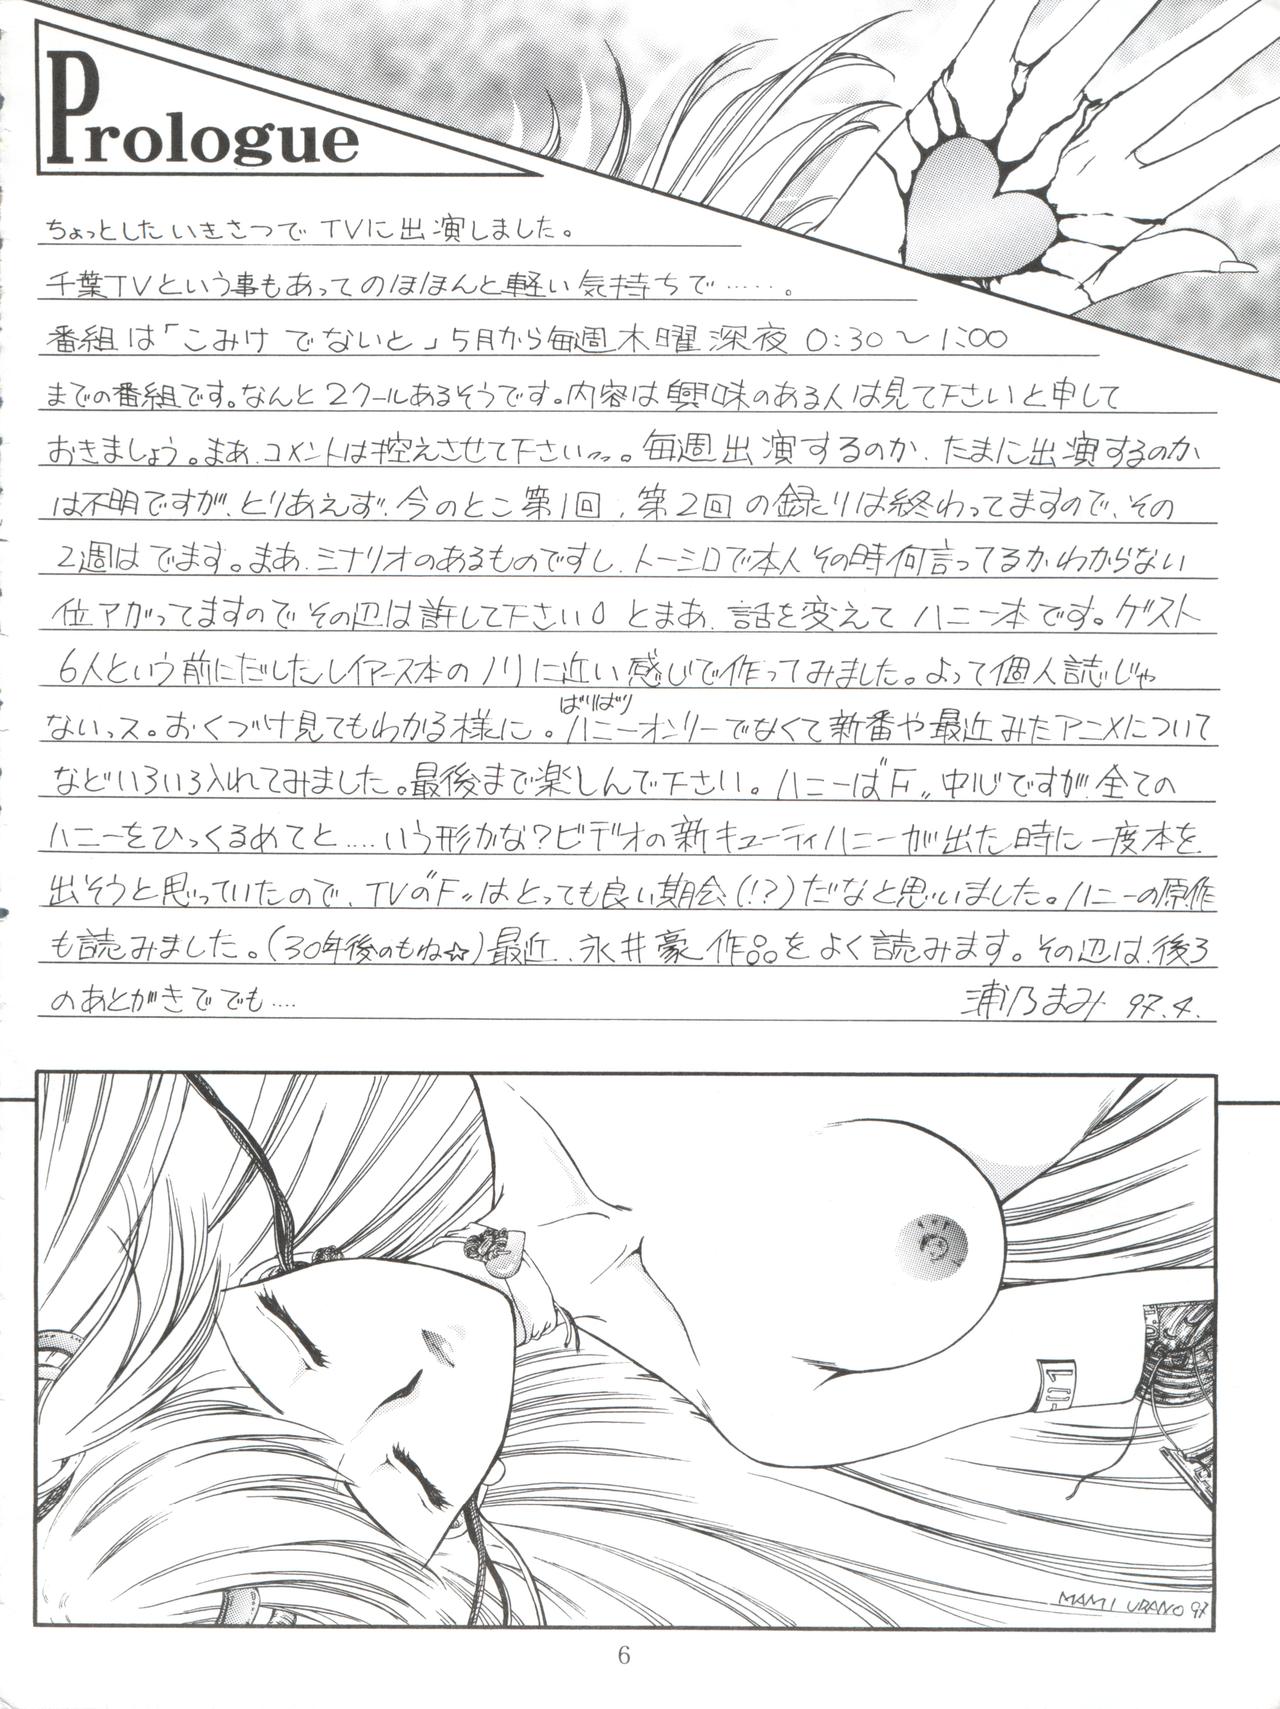 Prologue
ちょっとしたいきさつでTVに出演しました。
千葉TVという事もあってのほほんと軽い気持ちで……。
番組は「こみけでないと」5月から毎週木曜深夜0:30〜1:00
までの番組です。なんと2クールあるそうです。内容は興味のある人は見て下さいと申して
おきましょう。まあ、コメントは控えさせて下さい〜。毎週出演するのか、たまに出演するのか
は不明ですが、とりあえず、今のとこ第1回、第2回の録りは終わってますので、その
2週はでます。まあ、ミナリオのあるものですし、トーシロで本人その時何言ってるかわからない
位アガってますのでその辺は許して下さい。とまあ、話を変えてハニー本です。ゲスト
6人という前にだしたレイアース本のノリに近い感じで作ってみました。よって個人誌じゃ
ないっス。おくづけ見てもわかる様に。ばりばりハニーオンリーでなくて新番や最近みたアニメについて
などいろいろ入れてみました。最後まで楽しんで下さい。ハニーは"F"中心ですが、全ての
ハニーをひっくるめてと……いう形かな?ビデオの新キューティハニーが出た時に一度本を
出そうと思っていたので、TVの"F"はとっても良い期会(!?)だなと思いました。ハニーの原作
も読みました。(30年後のもね☆)最近、永井豪作品をよく読みます。その辺は、後ろ
のあとがきででも…
浦乃まみ 97.4.
MAMI URANO 97
6